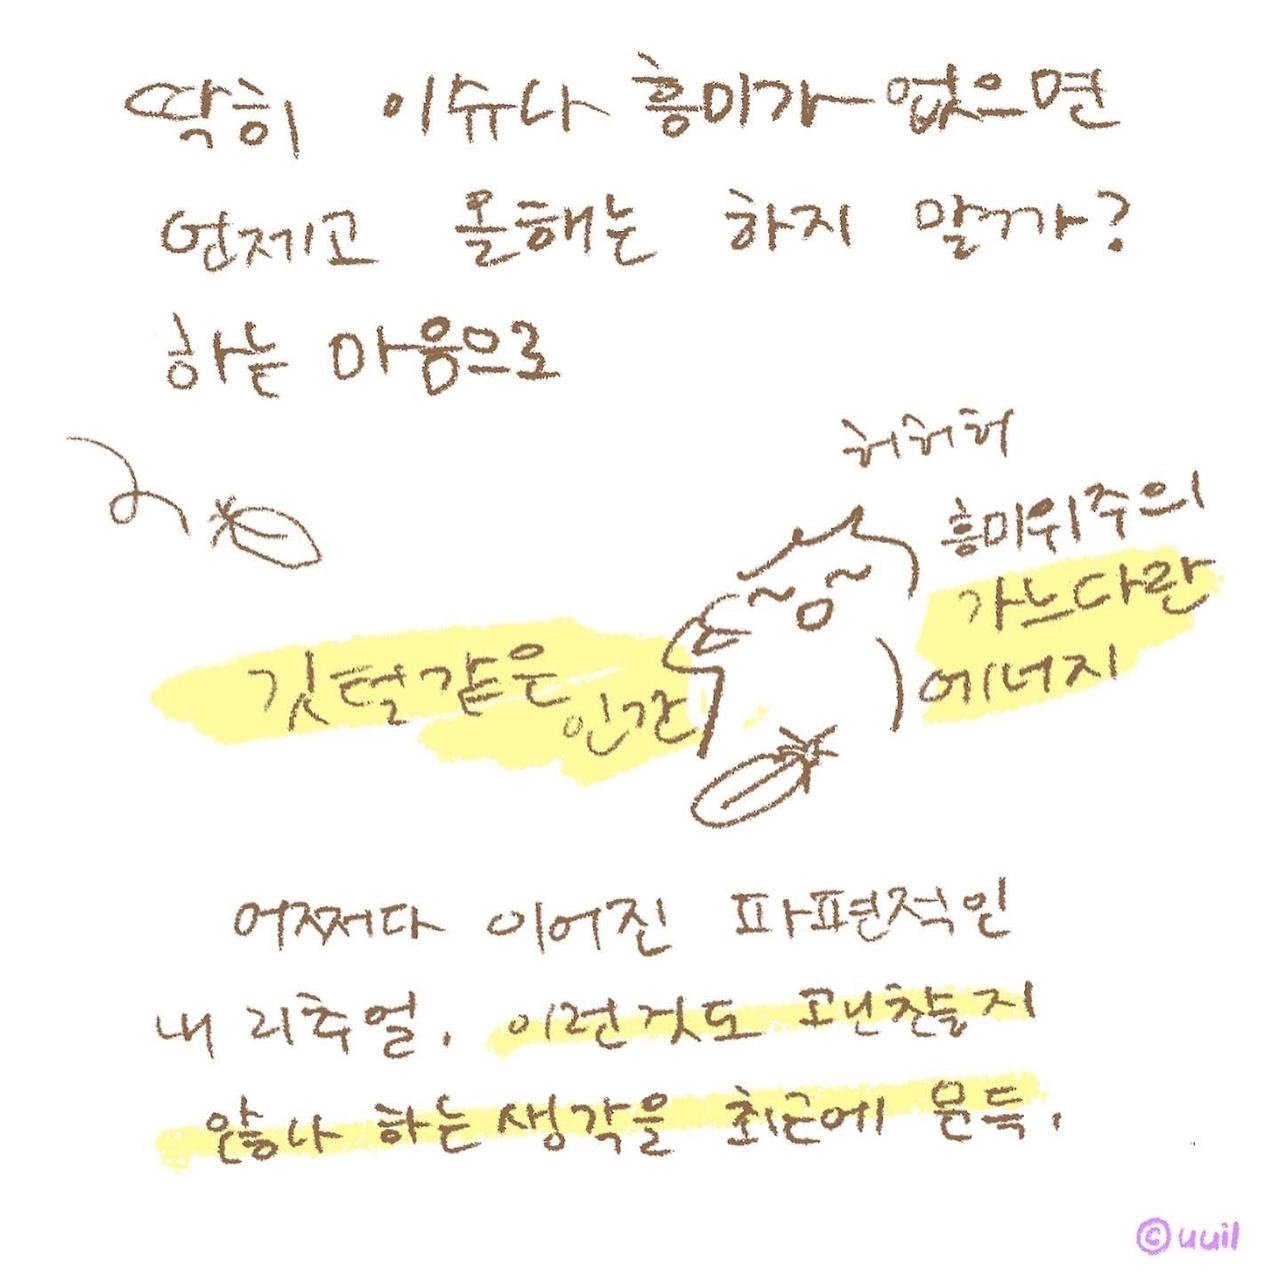 딱히 이슈나 흥미가 없으면
언제고 올해는 하지 말까?
하는 마음으로
허허허
흥미위주의
가느다란
에너지
깃털같은
인간
어쩌다 이어진 파편적인
내 리추얼. 이런것도 괜찮을지
않나 하는 생각을 최근에 문득.
©uuil